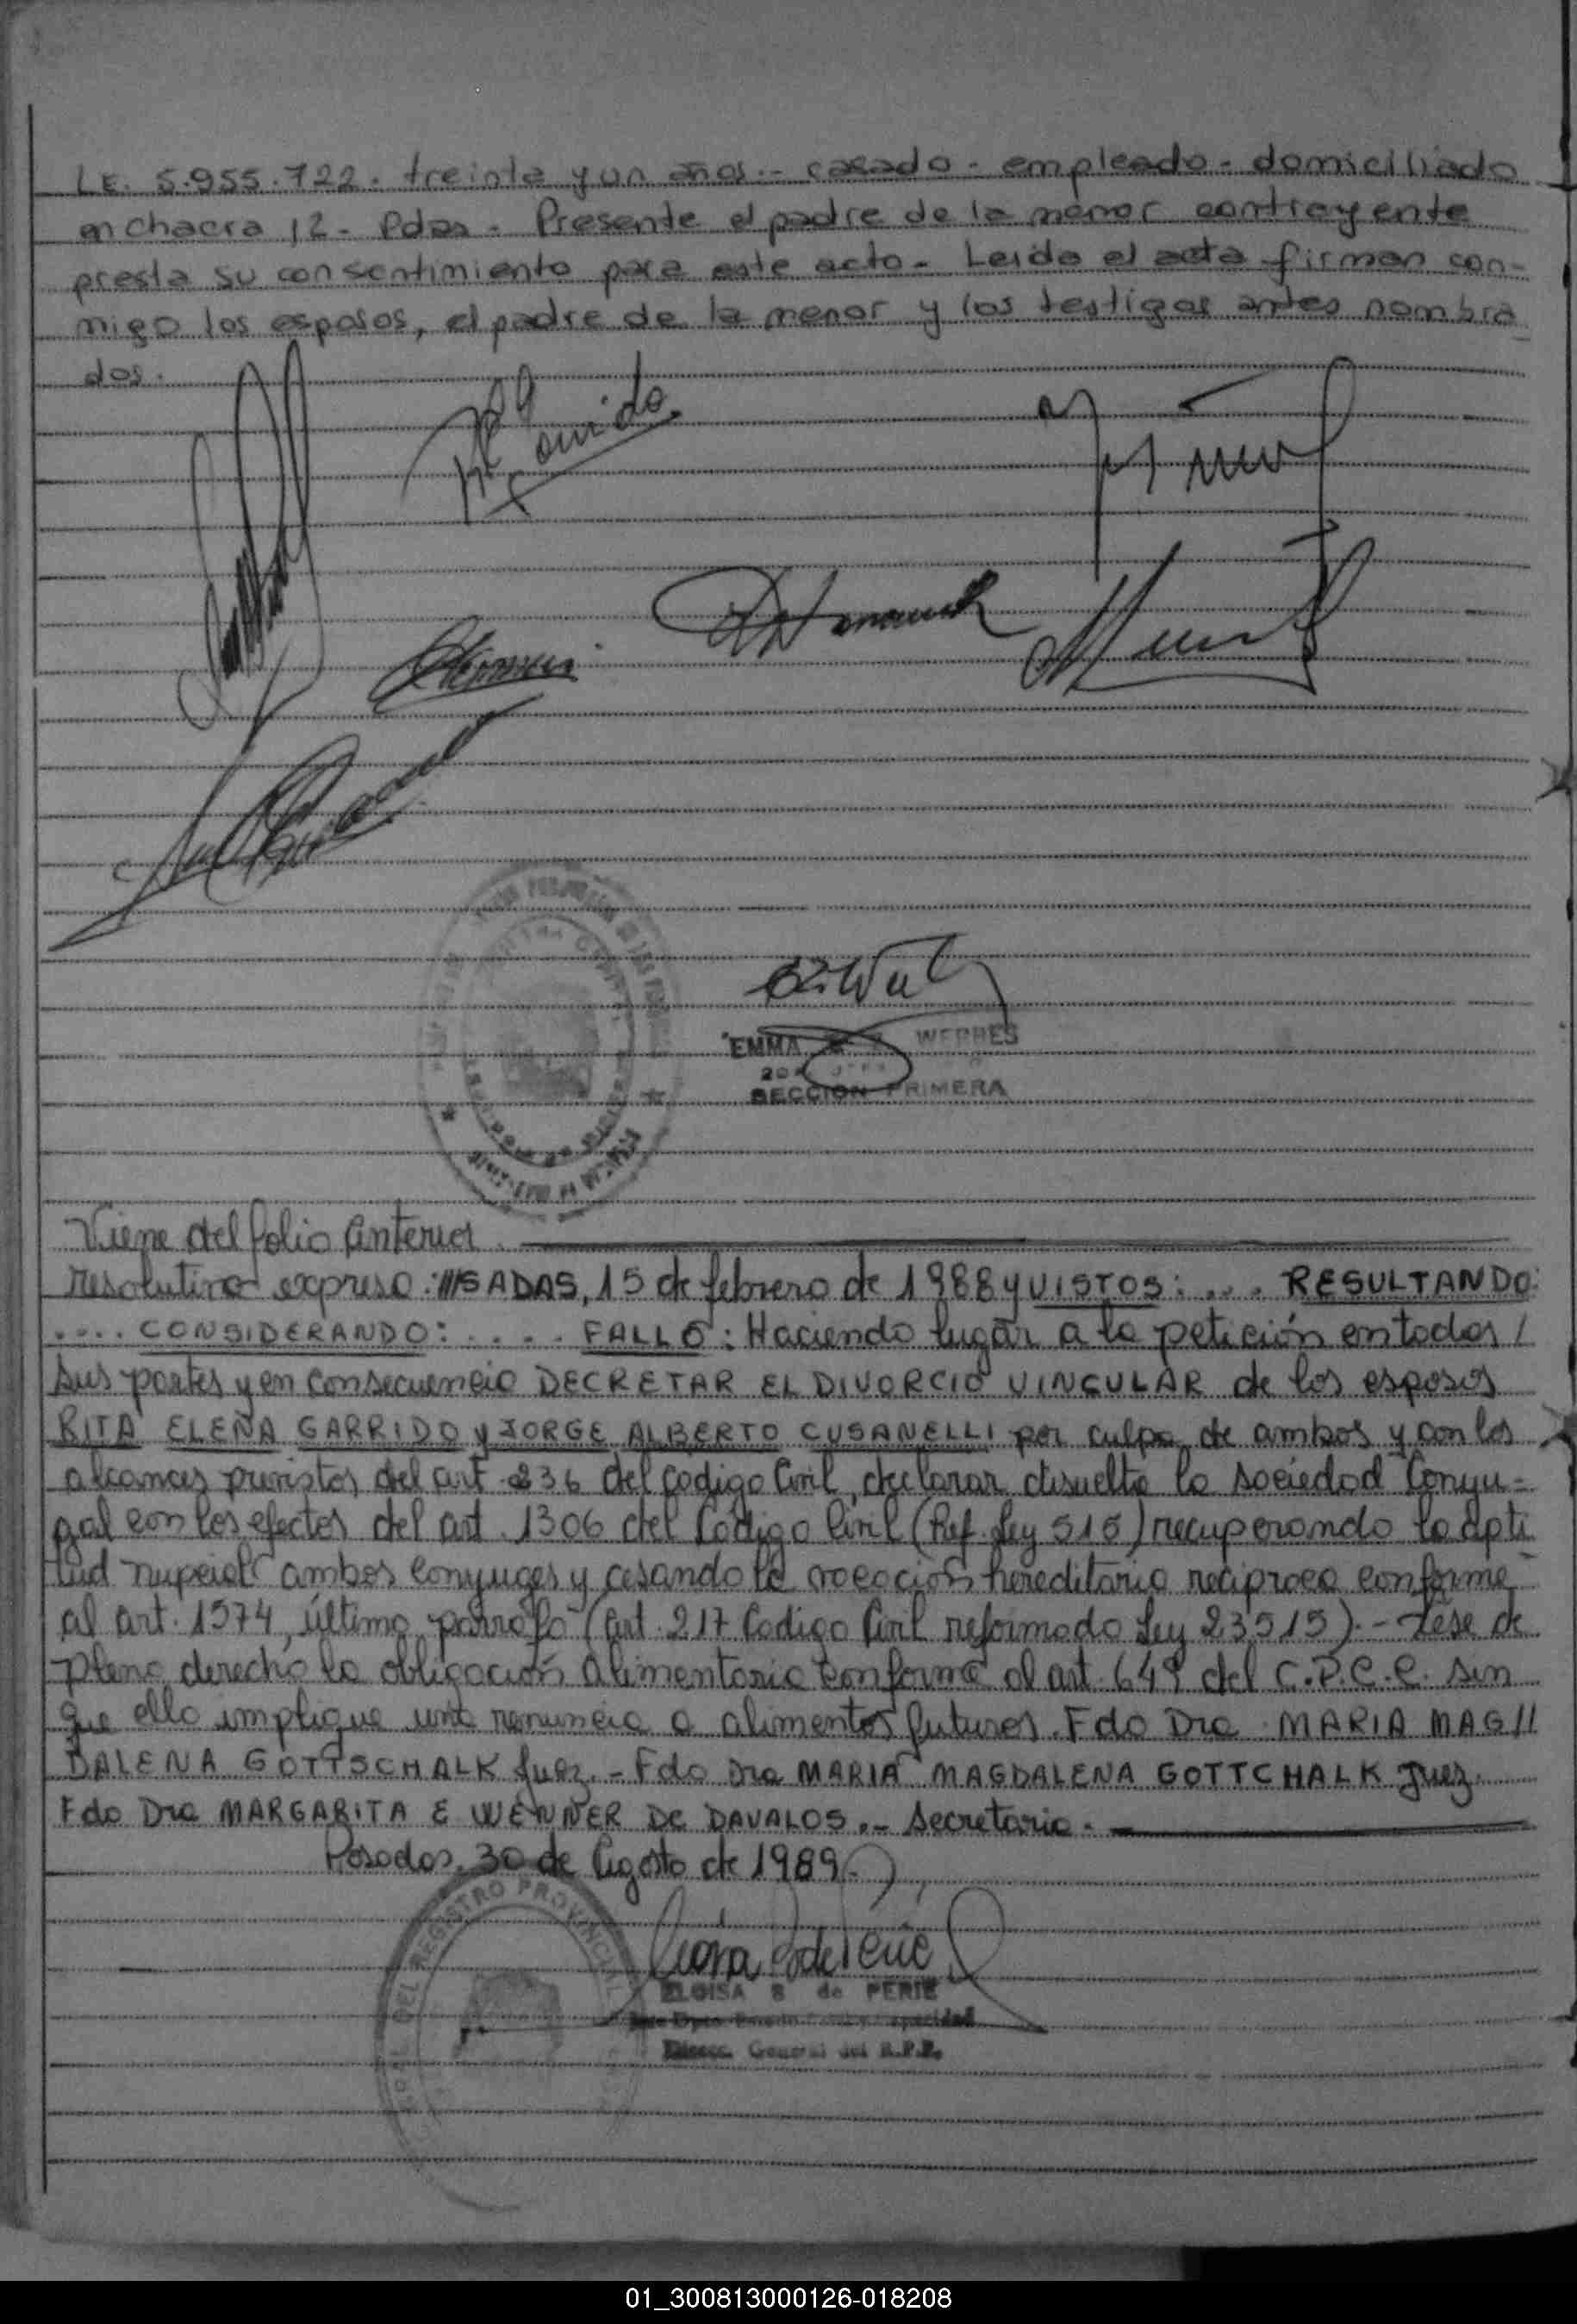 L.E. 5.955.722. treinta y un años.- casado - empleado - domiciliado
en chacra 12 - Pdas - Presente el padre de la menor contrayente
presta su consentimiento para este acto - Leida el acta firman con-
migo los esposos, el padre de la menor y los testigos antes nombra
dos.
EMMA WERBES
SECCION PRIMERA
Viene del folio anterior
resolutivo expresa: ///SADAS, 15 de febrero de 1988 y VISTOS: .... RESULTANDO:
.... CONSIDERANDO: .... FALLO: Haciendo lugar a la petición en todas /
sus partes y en consecuencia DECRETAR EL DIVORCIO VINCULAR de los esposos
RITA ELENA GARRIDO y JORGE ALBERTO CUSANELLI por culpa de ambos y con los
alcances previstos del art. 236 del Codigo Civil, declarar disuelta la sociedad Conyu-
gal con los efectos del art. 1306 del Codigo Civil (Ref. Ley 515) recuperando la apti
tud nupcial ambos conyuges y cesando la vocación hereditaria reciproca conforme
al art. 1574, último parrafo (art. 217 Codigo Civil reformado Ley 23515).- Cese de
pleno derecho la obligación alimentaria conforme al art. 649 del C.P.C.C. sin
que ello implique una renuncia a alimentos futuros. Fdo Dra. MARIA MAG//
DALENA GOTTSCHALK Juez.- Fdo Dra MARIA MAGDALENA GOTTCHALK Juez.
Fdo Dra MARGARITA E WENNER DE DAVALOS.- Secretaria.-
Posadas, 30 de Agosto de 1989.
DEL REGISTRO PROVINCIAL
ELOISA B de PERIE
Direcc. General del R.P.P.
01_300813000126-018208